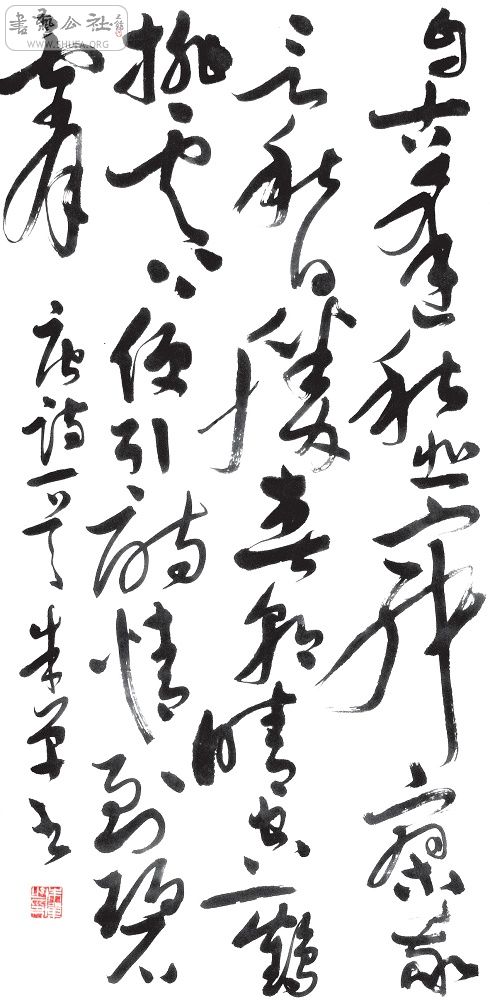 書藝公社
WWW.SHUFA.ORG
自古逢秋悲寂寥我
言秋日勝春朝晴空一鶴
排雲上便引詩情到碧
霄
唐詩一首 朱